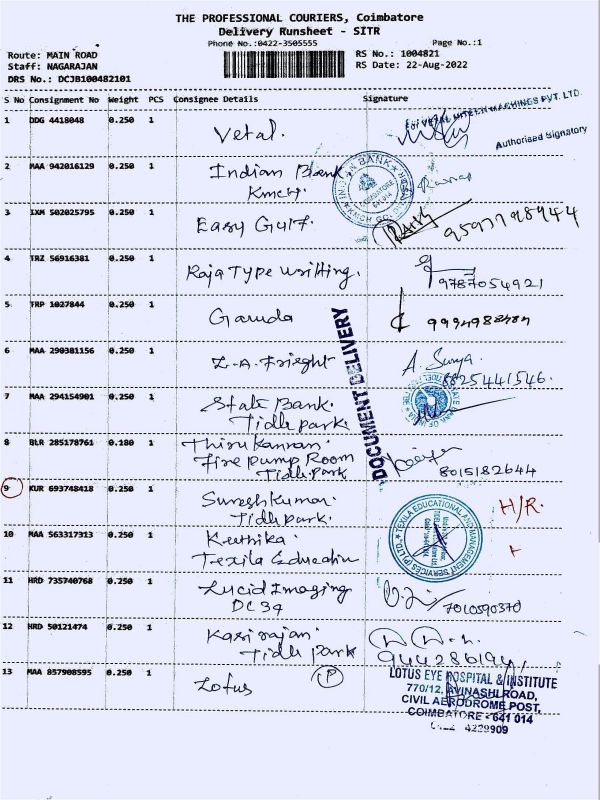 THE PROFESSIONAL COURIERS, Coimbatore
Delivery Runsheet - SITR
Phone No.:0422-3505555 Page No.:1
Route: MAIN ROAD RS No.: 1004821
Staff: NAGARAJAN RS Date: 22-Aug-2022
DRS No.: DCJB100482101
S No Consignment No Weight PCS Consignee Details Signature
1 DDG 4418048 0.250 1 Vetal.
For VETAL HITECH MACHINES PVT. LTD.
Authorised Signatory
2 MAA 942016129 0.250 1 Indian Bank
KMCH.
INDIAN BANK
COIMBATORE
641 014
3 IXM 502025795 0.250 1 Easy Gulf.
4 TRZ 56916381 0.250 1 Raja Type writting.
9787054921
5 TRP 1027844 0.250 1 Garuda
6 MAA 290381156 0.250 1 L.A. Frieght
A. Surya.
8825441546.
DOCUMENT DELIVERY
7 MAA 294154901 0.250 1 State Bank.
Tidle park.
8 BLR 285178761 0.180 1 Thiru Kannan.
Fire Pump Room
Tidle Park
8015182644
9 KUR 693748418 0.250 1 Sureshkumar
Tidle park.
H/R.
10 MAA 563317313 0.250 1 Keuthika.
Texila Education
TEXILA EDUCATIONAL AND MANAGEMENT SERVICES (P) LTD.
11 HRD 735740768 0.250 1 Lucid Imaging
DC34
7010590370
12 HRD 50121474 0.250 1 Kasirajan.
Tidle Park
13 MAA 857908595 0.250 1 Lotus
P
LOTUS EYE HOSPITAL & INSTITUTE
770/12, AVINASHI ROAD,
CIVIL AERODROME POST,
COIMBATORE - 641 014
4229909